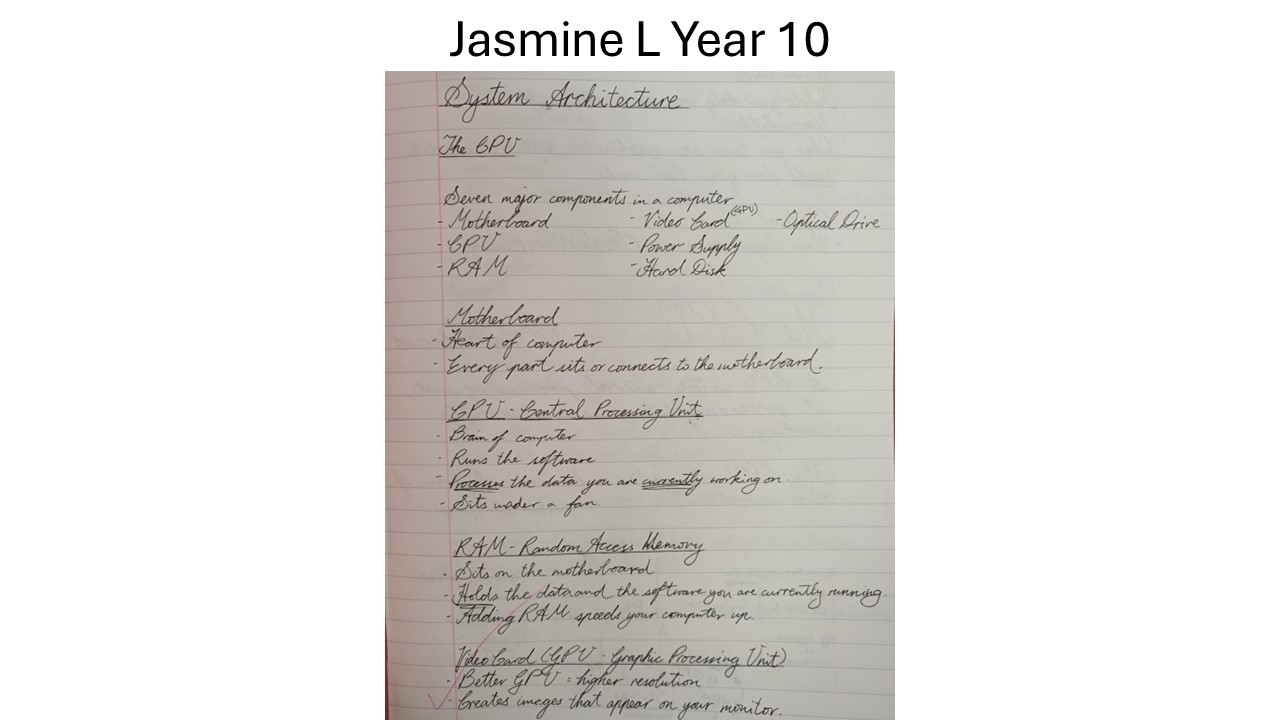 Jasmine L Year 10
System Architecture
The CPU
Seven major components in a computer
- Motherboard - Video Card (GPU) - Optical Drive
- CPU - Power Supply
- RAM - Hard Disk
Motherboard
- Heart of computer
- Every part sits or connects to the motherboard.
CPU - Central Processing Unit
- Brain of computer
- Runs the software
- Processes the data you are currently working on.
- Sits under a fan.
RAM - Random Access Memory
- Sits on the motherboard
- Holds the data and the software you are currently running.
- Adding RAM speeds your computer up.
Video Card (GPU - Graphic Processing Unit)
- Better GPU = higher resolution
- Creates images that appear on your monitor.